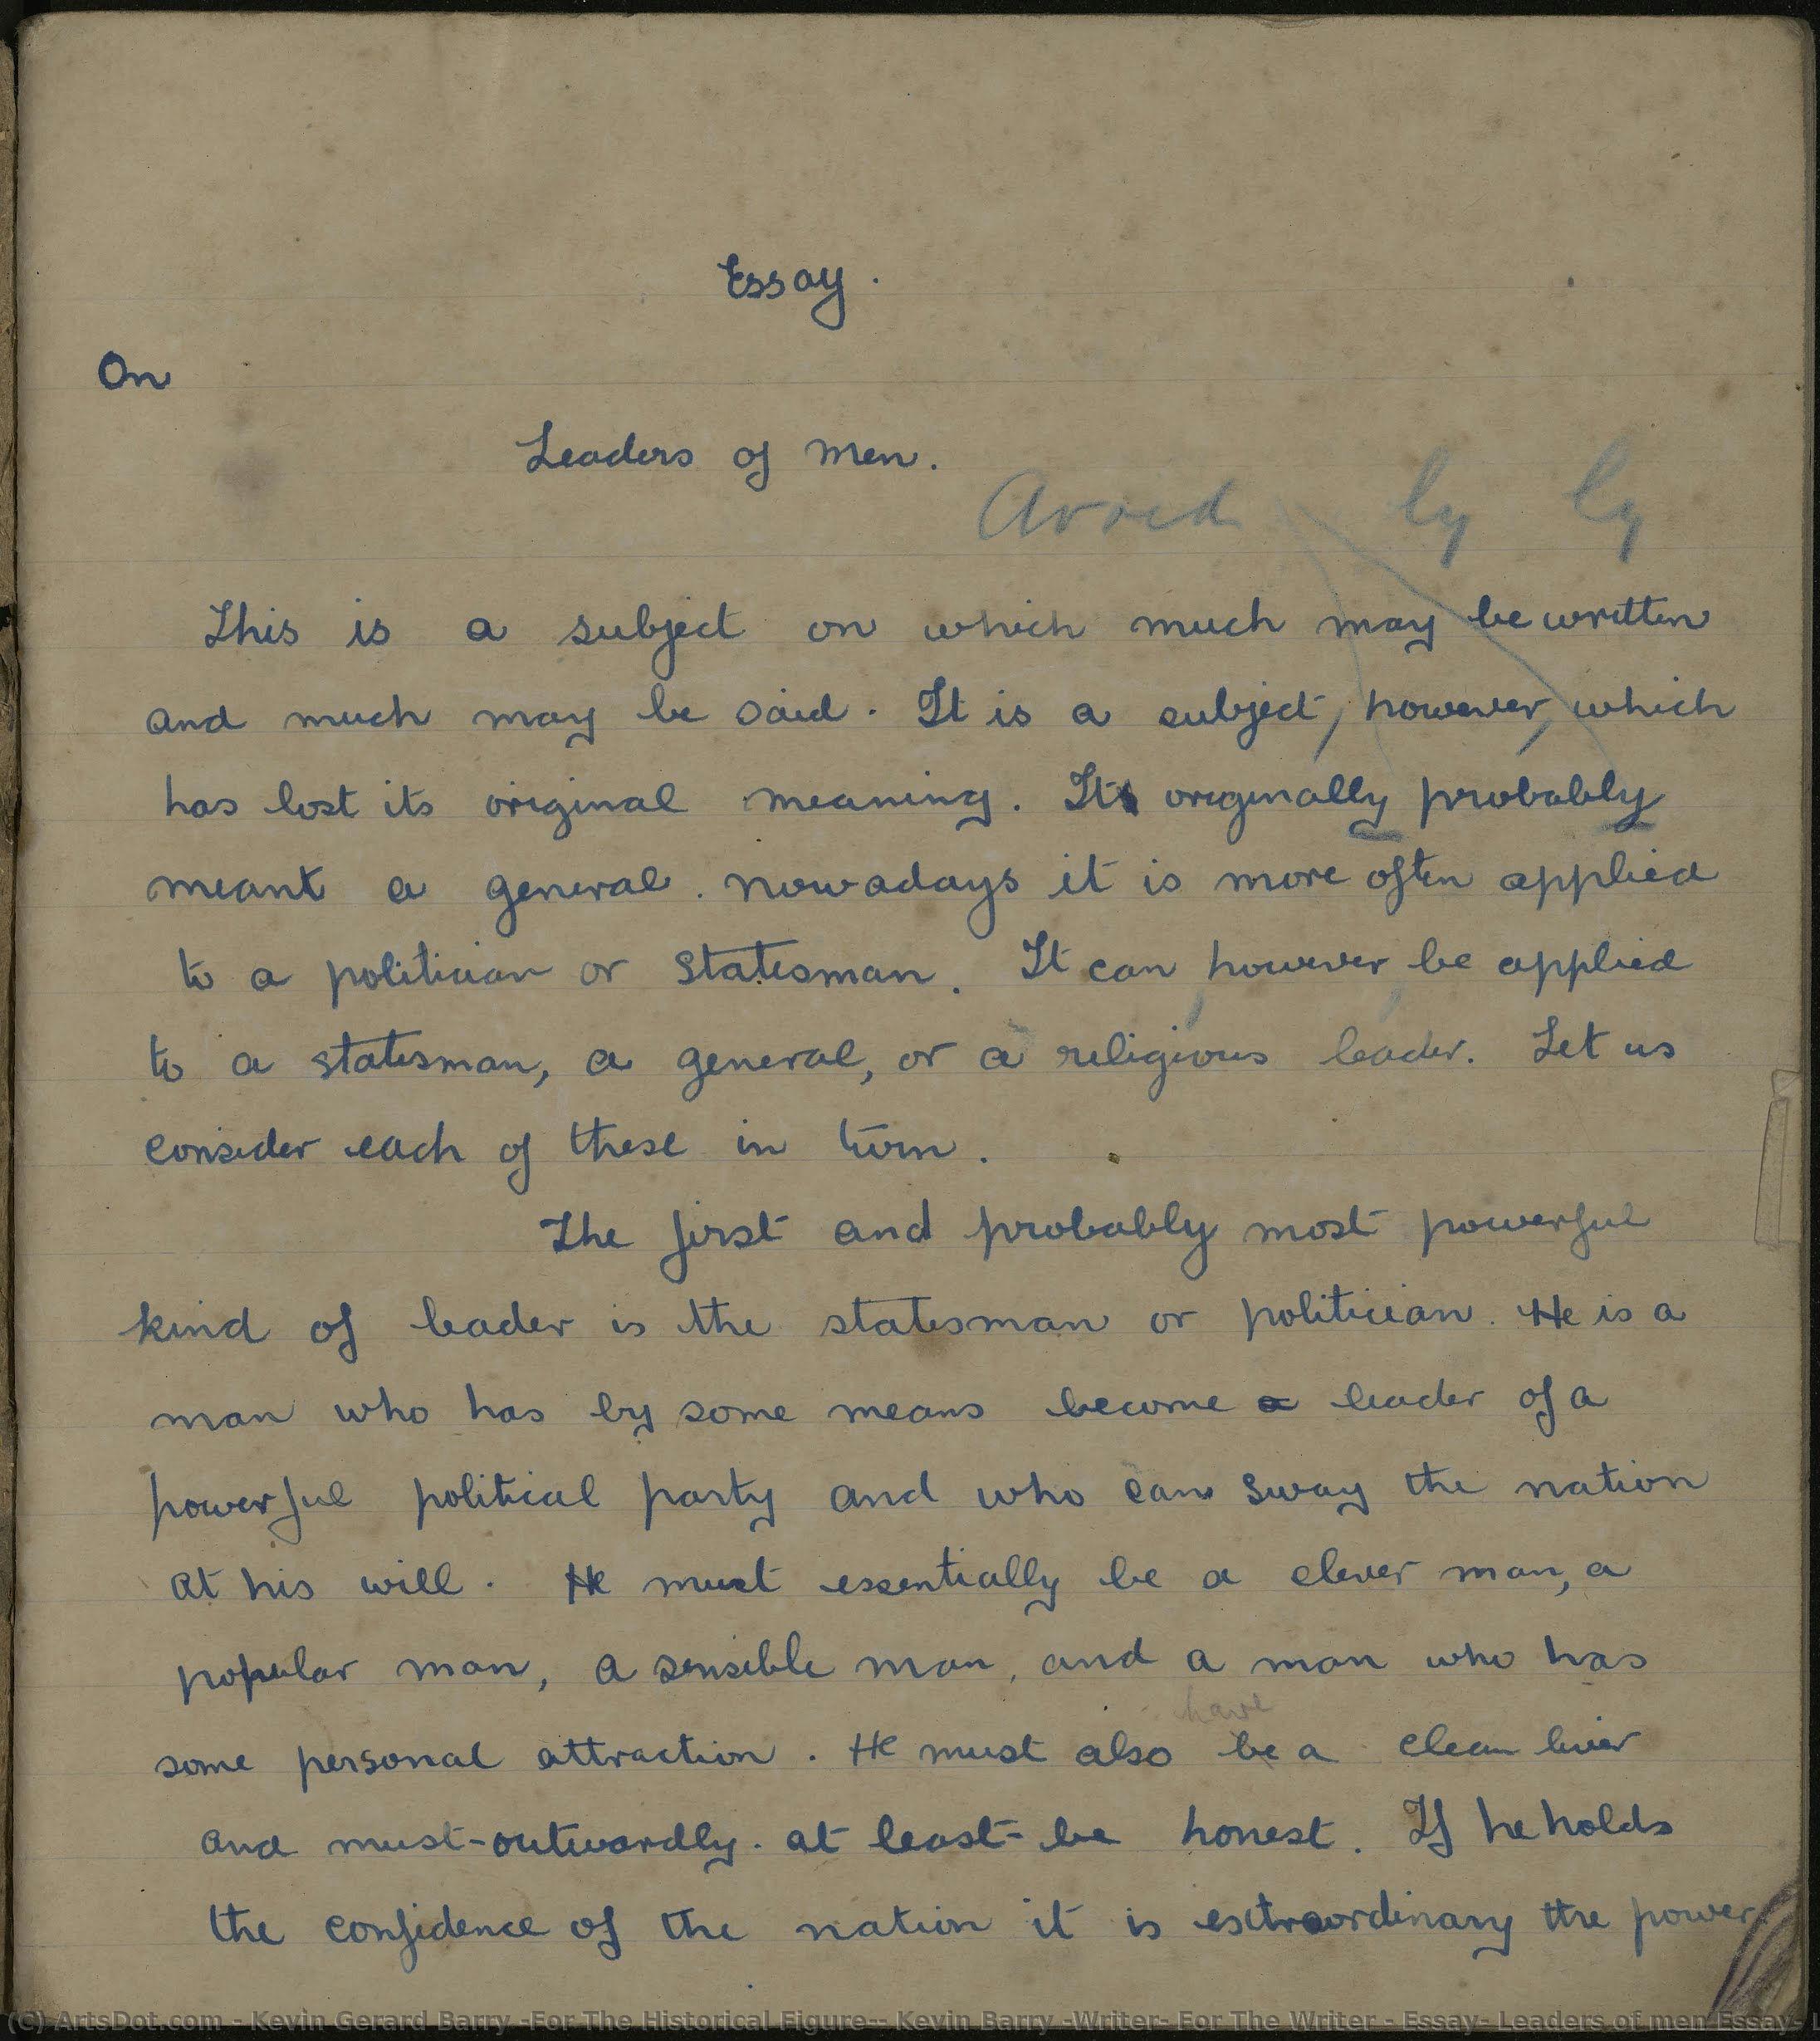 Essay.
On
Leaders of Men.
Avoid ly ly
This is a subject on which much may be written
and much may be said. It is a subject, however, which
has lost its original meaning. It originally probably
meant a general. nowadays it is more often applied
to a politician or statesman. It can however be applied
to a statesman, a general, or a religious leader. Let us
consider each of these in turn.
The first and probably most powerful
kind of leader is the statesman or politician. He is a
man who has by some means become a leader of a
powerful political party and who can sway the nation
at his will. He must essentially be a clever man, a
popular man, a sensible man, and a man who has
have
some personal attraction. He must also be a clean liver
and must-outwardly at least-be honest. If he holds
the confidence of the nation it is extraordinary the power
(C) ArtsDot.com - Kevin Gerard Barry -For The Historical Figure-- Kevin Barry -Writer- For The Writer - Essay- Leaders of men Essay-